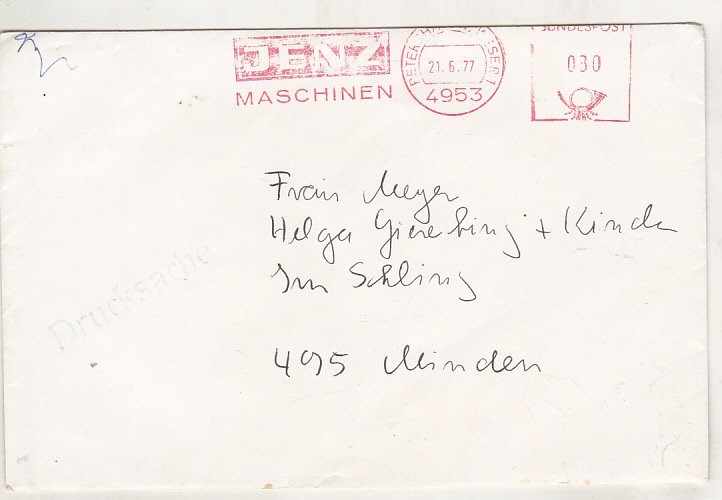 JENZ
MASCHINEN
21.6.77
4953
BUNDESPOST
030
Drucksache
Frau Meyer
Helga + Kinder
Im Schling
495 Minden